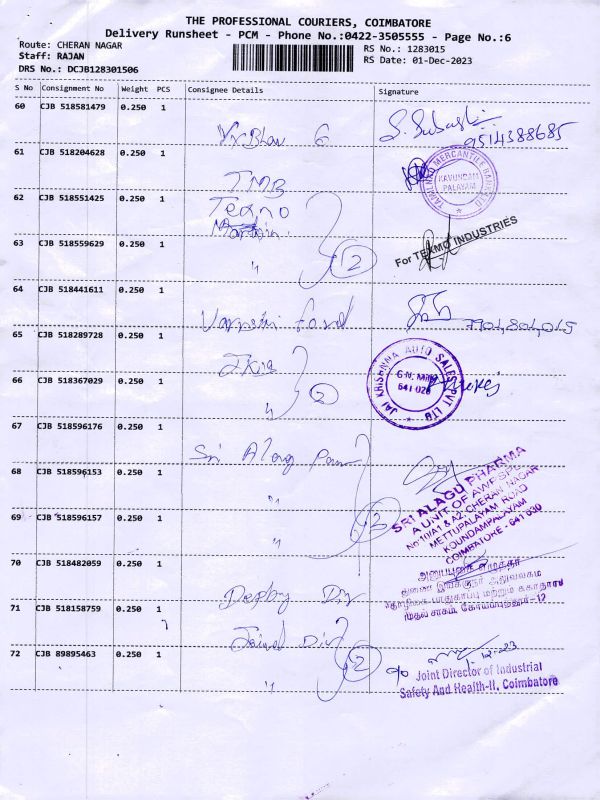 THE PROFESSIONAL COURIERS, COIMBATORE
Delivery Runsheet - PCM - Phone No.:0422-3505555 - Page No.:6
Route: CHERAN NAGAR
RS No.: 1283015
Staff: RAJAN
RS Date: 01-Dec-2023
DRS No.: DCJB128301506
S No Consignment No Weight PCS Consignee Details Signature
60 CJB 518581479 0.250 1
9514388685
61 CJB 518204628 0.250 1
TMB
TAMILNAD MERCANTILE BANK LTD
KAVUNDAM
PALAYAM
62 CJB 518551425 0.250 1
Texmo
63 CJB 518559629 0.250 1
"
2
For TEXMO INDUSTRIES
64 CJB 518441611 0.250 1
65 CJB 518289728 0.250 1
JAI KRISHNNA AUTO SALES PVT LTD
G.N. Mills
641 029
66 CJB 518367029 0.250 1
"
2
67 CJB 518596176 0.250 1
Sri Alagu
68 CJB 518596153 0.250 1
"
SRI ALAGU PHARMA
A UNIT OF AWPSPL
No:10/A1 & A2, CHERAN NAGAR
METTUPALAYAM ROAD
KOUNDAMPALAYAM
COIMBATORE - 641 030
69 CJB 518596157 0.250 1
"
70 CJB 518482059 0.250 1
துணை இயக்குநர் அலுவலகம்
71 CJB 518158759 0.250 1
72 CJB 89895463 0.250 1
"
2
Joint Director of Industrial
Safety And Health-II, Coimbatore